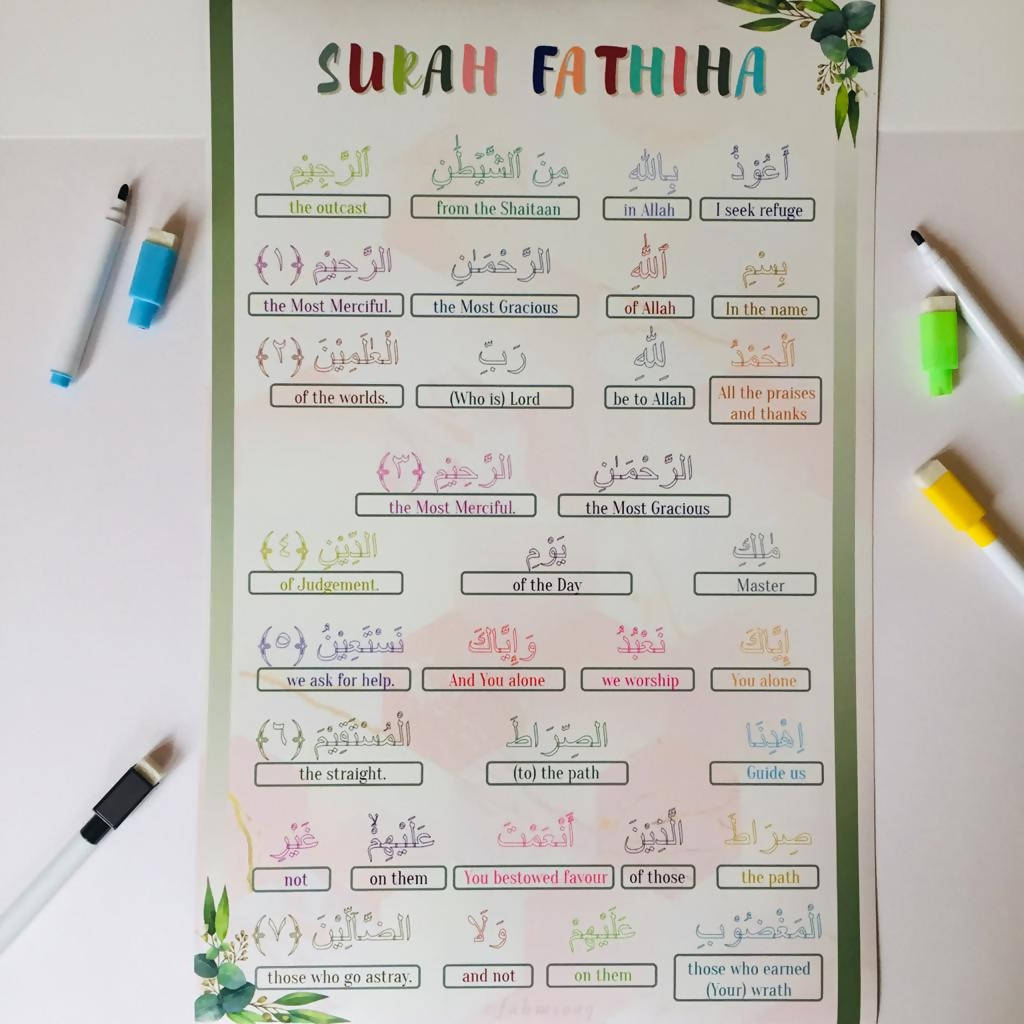 SURAH FATHIHA
أَعُوْذُ بِاللهِ مِنَ ٱلشَّيْطٰنِ ٱلرَّجِيْمِ
I seek refuge in Allah from the Shaitaan the outcast
بِسْمِ ٱللهِ الرَّحْمٰنِ الرَّحِيْمِ ﴿١﴾
In the name of Allah the Most Gracious the Most Merciful.
اَلْحَمْدُ لِلّٰهِ رَبِّ الْعٰلَمِيْنَ ﴿٢﴾
All the praises and thanks be to Allah (Who is) Lord of the worlds.
الرَّحْمٰنِ الرَّحِيْمِ ﴿٣﴾
the Most Gracious the Most Merciful.
مٰلِكِ يَوْمِ الدِّيْنِ ﴿٤﴾
Master of the Day of Judgement.
إِيَّاكَ نَعْبُدُ وَإِيَّاكَ نَسْتَعِيْنُ ﴿٥﴾
You alone we worship And You alone we ask for help.
اِهْدِنَا الصِّرَاطَ الْمُسْتَقِيْمَ ﴿٦﴾
Guide us (to) the path the straight.
صِرَاطَ الَّذِيْنَ أَنْعَمْتَ عَلَيْهِمْ غَيْرِ
the path of those You bestowed favour on them not
الْمَغْضُوْبِ عَلَيْهِمْ وَلَا الضَّالِّيْنَ ﴿٧﴾
those who earned (Your) wrath on them and not those who go astray.